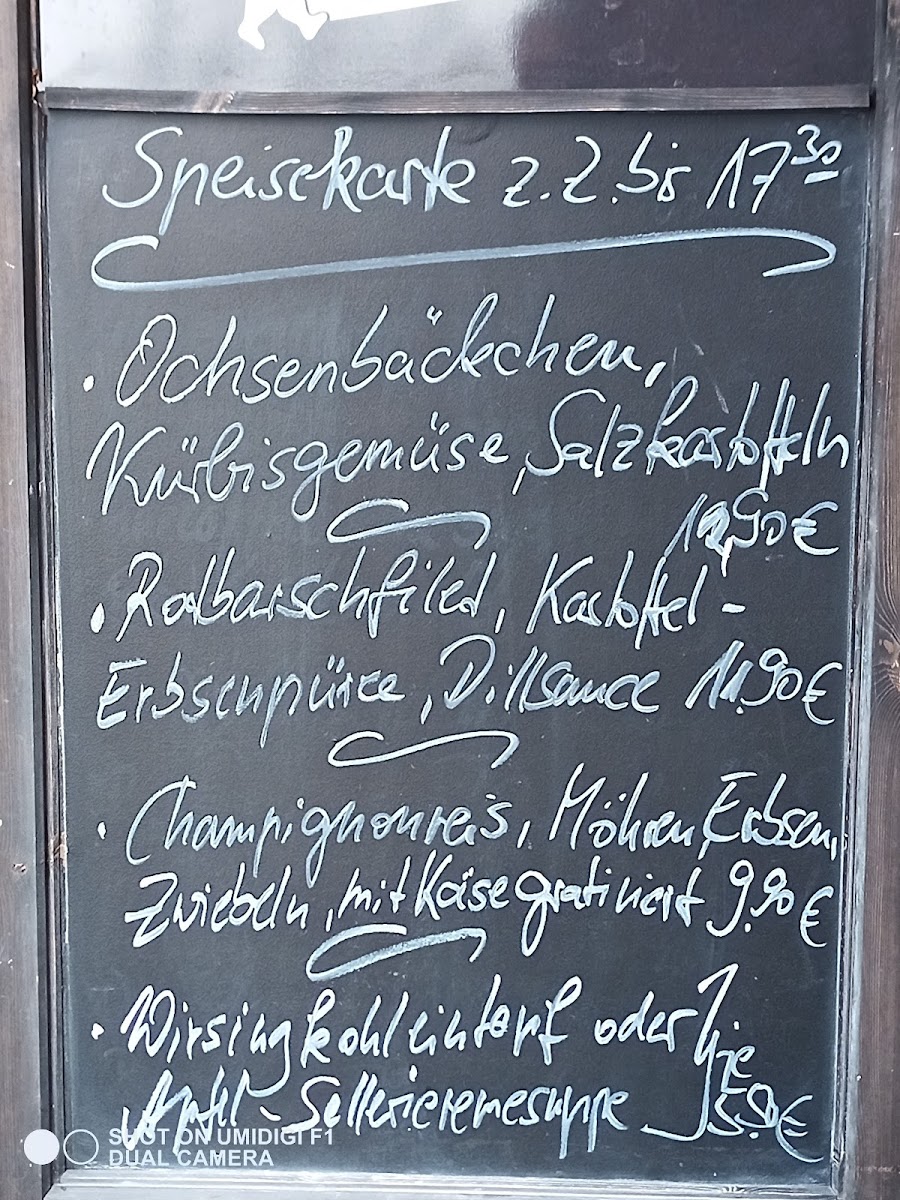 Speisekarte z.Z. bis 17³⁰
• Ochsenbäckchen,
Kürbisgemüse, Salzkartoffeln
• Rotbarschfilet, Kartoffel-
Erbsenpüree, Dillsauce 11.90€
• Champignonreis, Möhren, Erbsen,
Zwiebeln, mit Käse gratiniert 9.90€
• Wirsingkohleintopf oder
je
Apfel-Selleriecremesuppe 5.90€
SHOT ON UMIDIGI F1
DUAL CAMERA